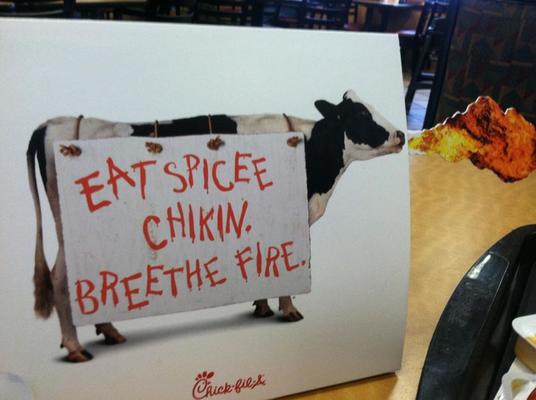 EAT SPICEE
CHIKIN.
BREETHE FIRE.
Chick-fil-A